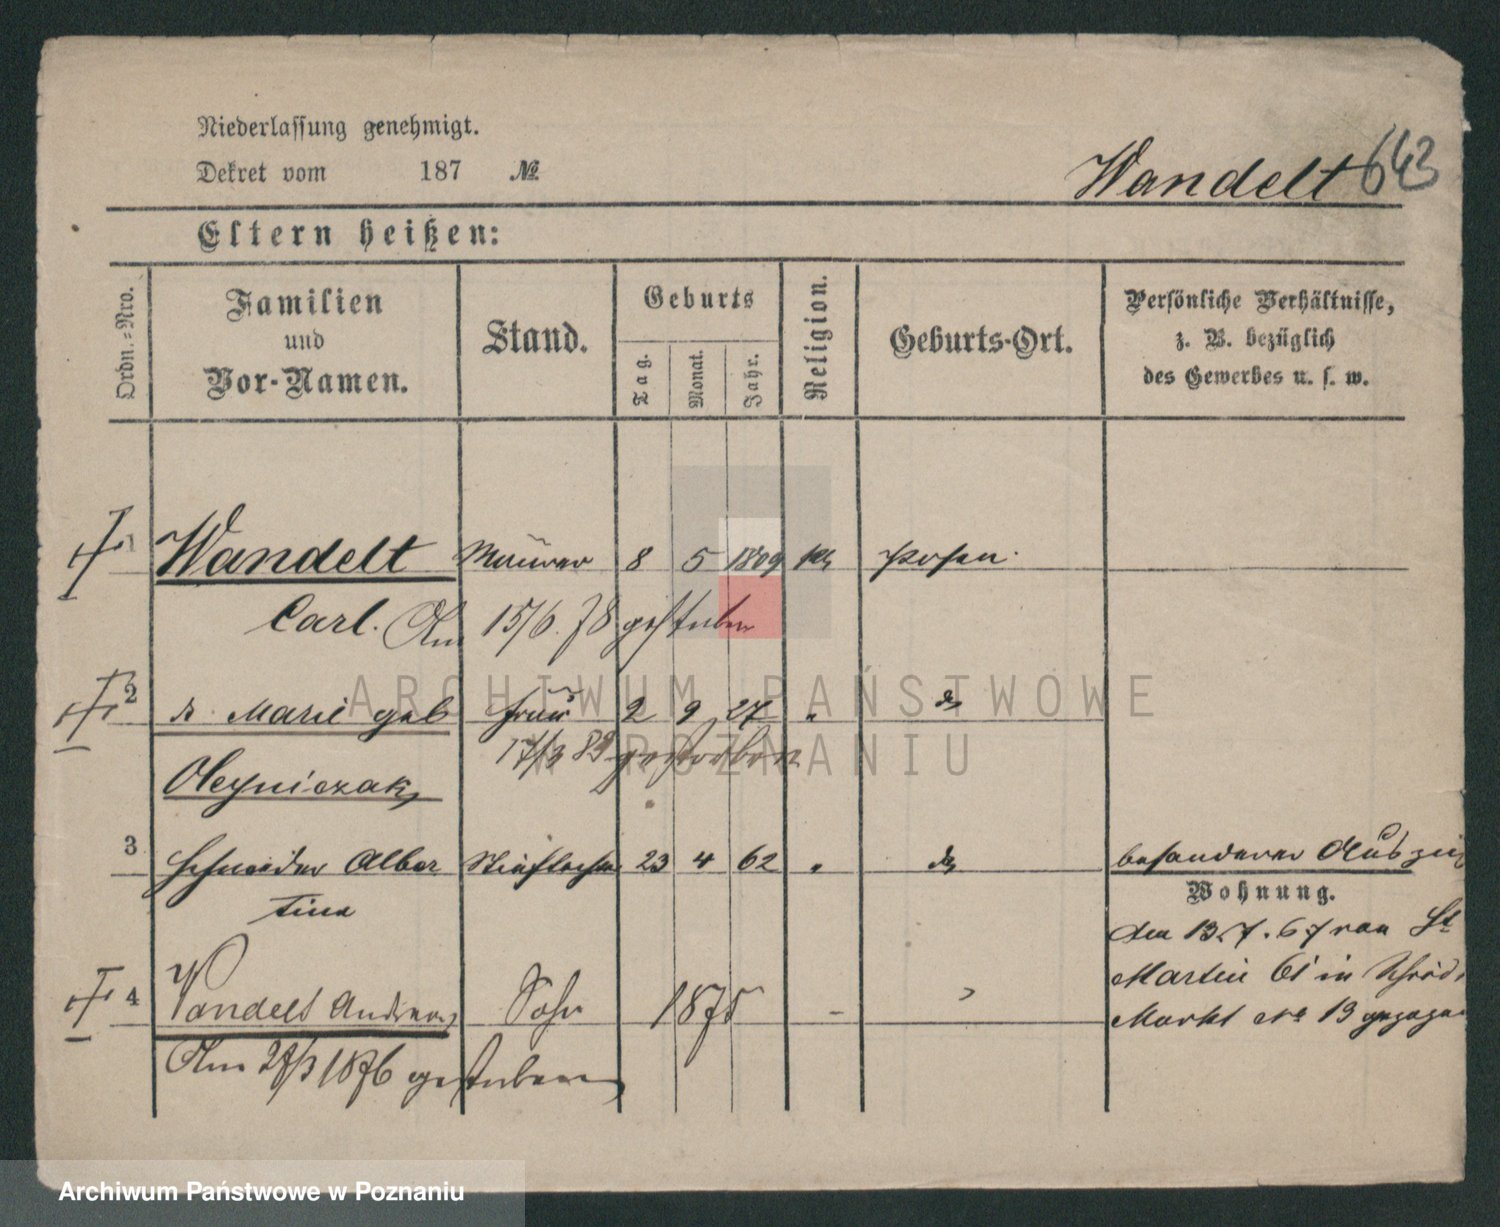 Niederlassung genehmigt.
Dekret vom 187 №
Wandelt 643
Eltern heißen:
Ordn.-Nro.
Familien und Vor-Namen.
Stand.
Geburts
Tag. Monat. Jahr.
Religion.
Geburts-Ort.
Persönliche Verhältnisse,
z. B. bezüglich
des Gewerbes u. s. w.
1 Wandelt Maurer 8 5 1809 kth Posen.
Carl. Am 15/6. 78 gestorben
2 do Marie geb Frau 2 9 27 " do
17/3 89 gestorben
Oleyniczak
3 Schneider Alber Stieftochter 23 4 62 " do besonderer Auszug
tine
Wohnung.
den 13.7.67 von St
Martin 61 in
4 Wandelt Andreas Sohn 1875 -
Markt No 13 gezogen
Am 28/3 1876 gestorben
ARCHIWUM PAŃSTWOWE
W POZNANIU
Archiwum Państwowe w Poznaniu